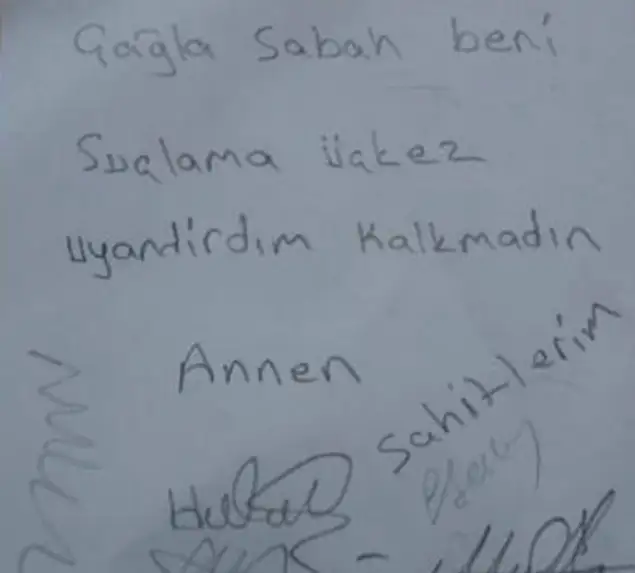 Çağla Sabah beni
Suçlama üçkez
uyandirdım Kalkmadın
Annen
Şahitlerim